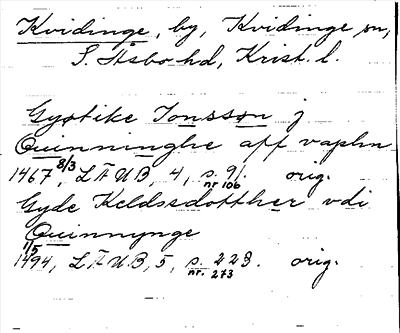 Kvidinge, by, Kvidinge sn,
S. Åsbo hd, Krist. l.
Gyøtike Jonsson j
Quinninghe aff vaphn
1467 8/3, LÄUB, 4, s. 91. orig.
nr 106
Gyde Keldssdotther vdi
Quinnynge
1/5
1494, LÄUB, 5, s. 223. orig.
nr. 273